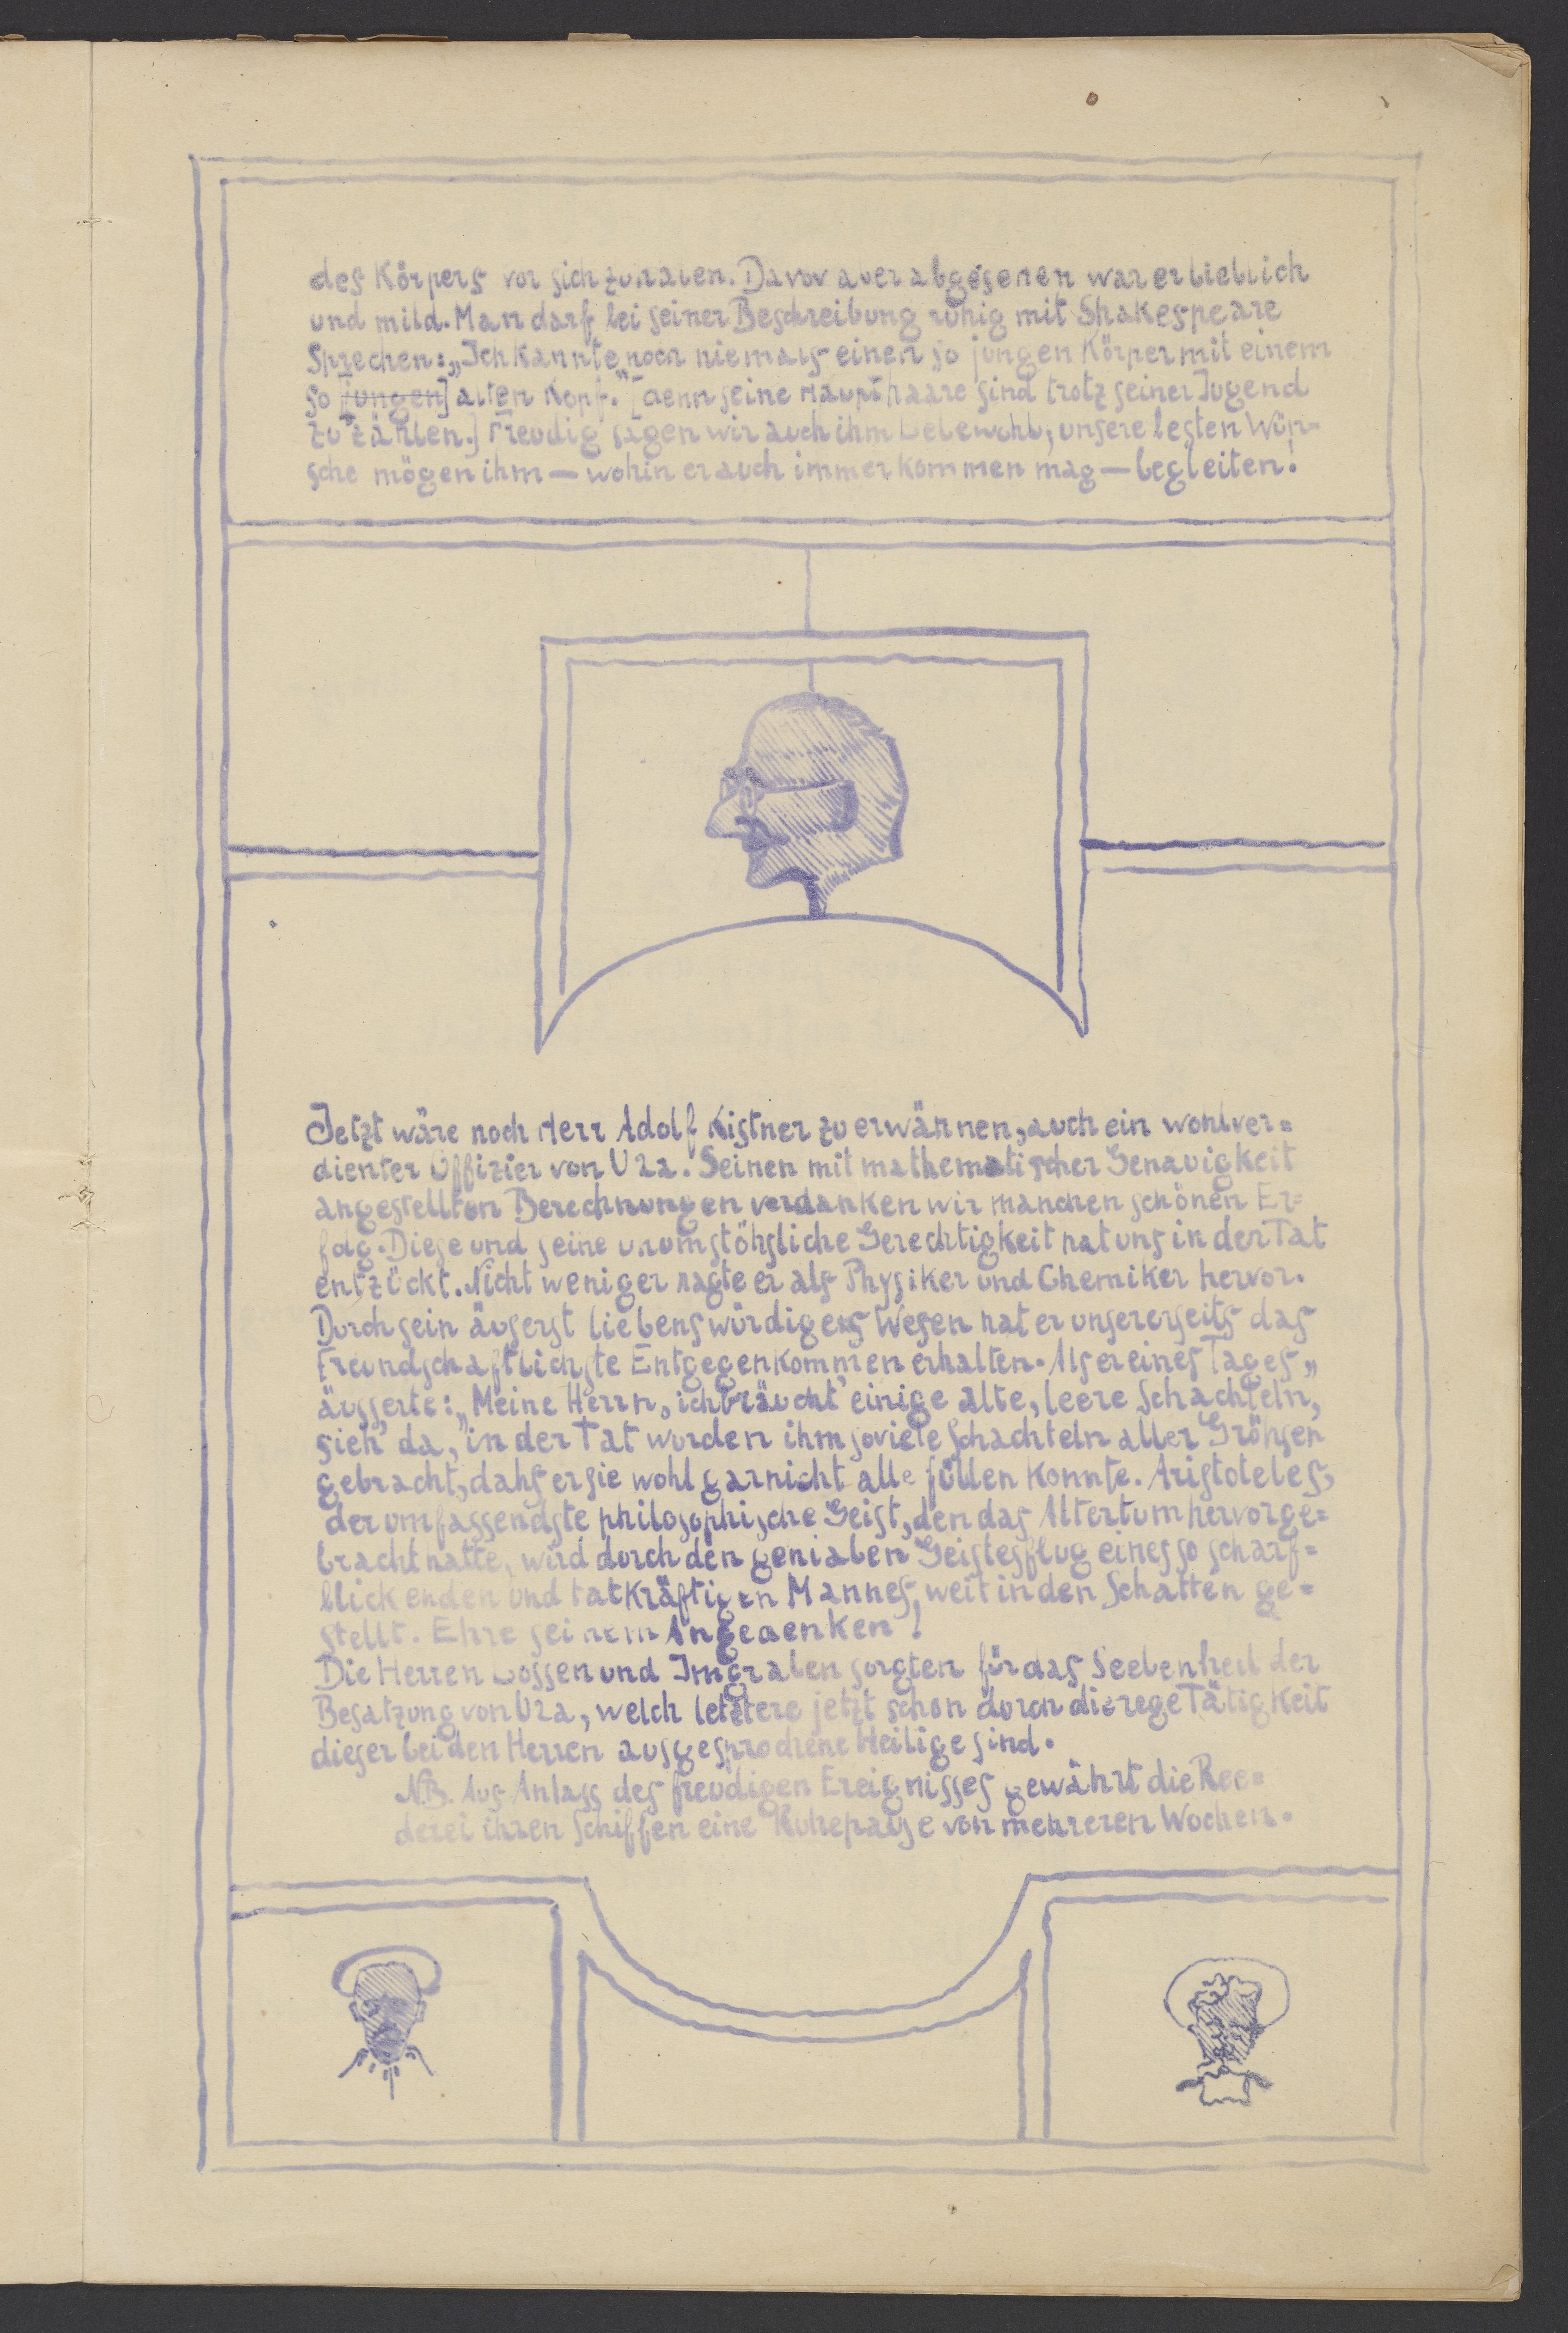 des Körpers vor sich zu haben. Davor aber abgesehen war er lieblich
und mild. Man darf bei seiner Beschreibung ruhig mit Shakespeare
Sprechen: „Ich kannte noch niemals einen so jungen Körper mit einem
so [jungen] alten Kopf.” [denn seine Haupthaare sind trotz seiner Jugend
zu zählen.] Freudig sagen wir auch ihm Lebewohl, unsere besten Wün=
sche mögen ihm — wohin er auch immer kommen mag — begleiten!
Jetzt wäre noch Herr Adolf Kistner zu erwähnen, auch ein wohlver=
dienter Offizier von U2a. Seinen mit mathematischer Genauigkeit
angestellten Berechnungen verdanken wir manchen schönen Er=
folg. Diese und seine unumstöhsliche Gerechtigkeit hat uns in der Tat
entzückt. Nicht weniger ragte er als Physiker und Chemiker hervor.
Durch sein äuserst liebenswürdiges Wesen hat er unsererseits das
Freundschaftlichste Entgegenkommen erhalten. Als er eines Tages „
äusserte: „Meine Herrn, ich bräucht' einige alte, leere Schachteln,
sieh' da, in der Tat wurden ihm soviele Schachteln aller Gröhsen
gebracht, dahs er sie wohl garnicht alle füllen konnte. Aristoteles,
der umfassendste philosophische Geist, den das Altertum hervorge=
bracht hatte, wird durch den genialen Geistesflug eines so scharf=
blickenden und tatkräftigen Mannes, weit in den Schatten ge=
stellt. Ehre seinem Angedenken!
Die Herren Lossen und Imgraben sorgten für das Seelenheil der
Besatzung von U2a, welch letztere jetzt schon durch die rege Tätigkeit
dieser beiden Herren ausgesprochene Heilige sind.
N.B. Aus Anlass des freudigen Ereignisses gewährt die Ree=
derei ihren Schiffen eine Ruhepause von mehreren Wochen.